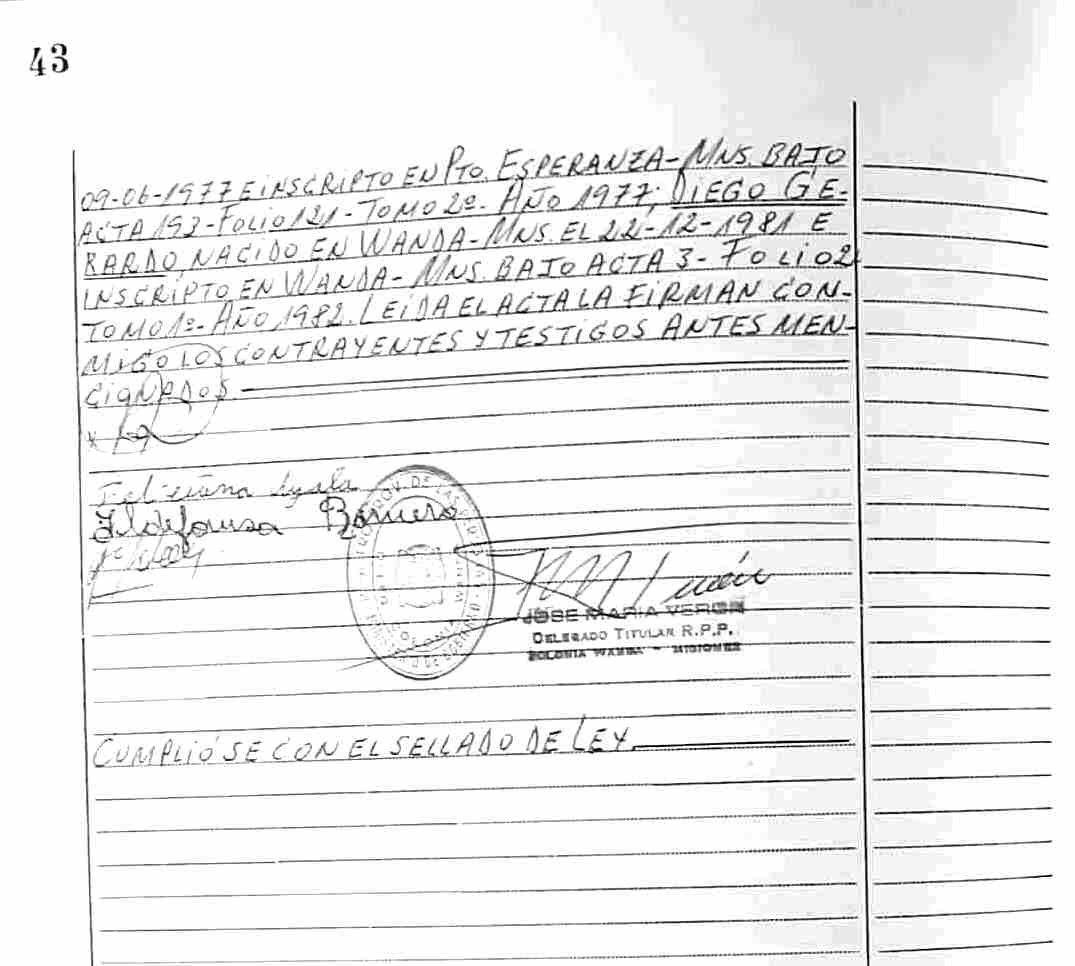 43
09-06-1977 E INSCRIPTO EN PTO. ESPERANZA - MNS. BAJO
ACTA 193 - FOLIO 121 - TOMO 2º - AÑO 1977; DIEGO GE-
RARDO, NACIDO EN WANDA - MNS. EL 22-12-1981 E
INSCRIPTO EN WANDA - MNS. BAJO ACTA 3 - FOLIO 2
TOMO 1º - AÑO 1982. LEIDA EL ACTA LA FIRMAN CON-
MIGO LOS CONTRAYENTES Y TESTIGOS ANTES MEN-
CIONADOS
Feliciana Ayala
Ildefonsa Romero
JOSE MARIA VERON
DELEGADO TITULAR R.P.P.
COLONIA WANDA - MISIONES
CUMPLIÓSE CON EL SELLADO DE LEY.